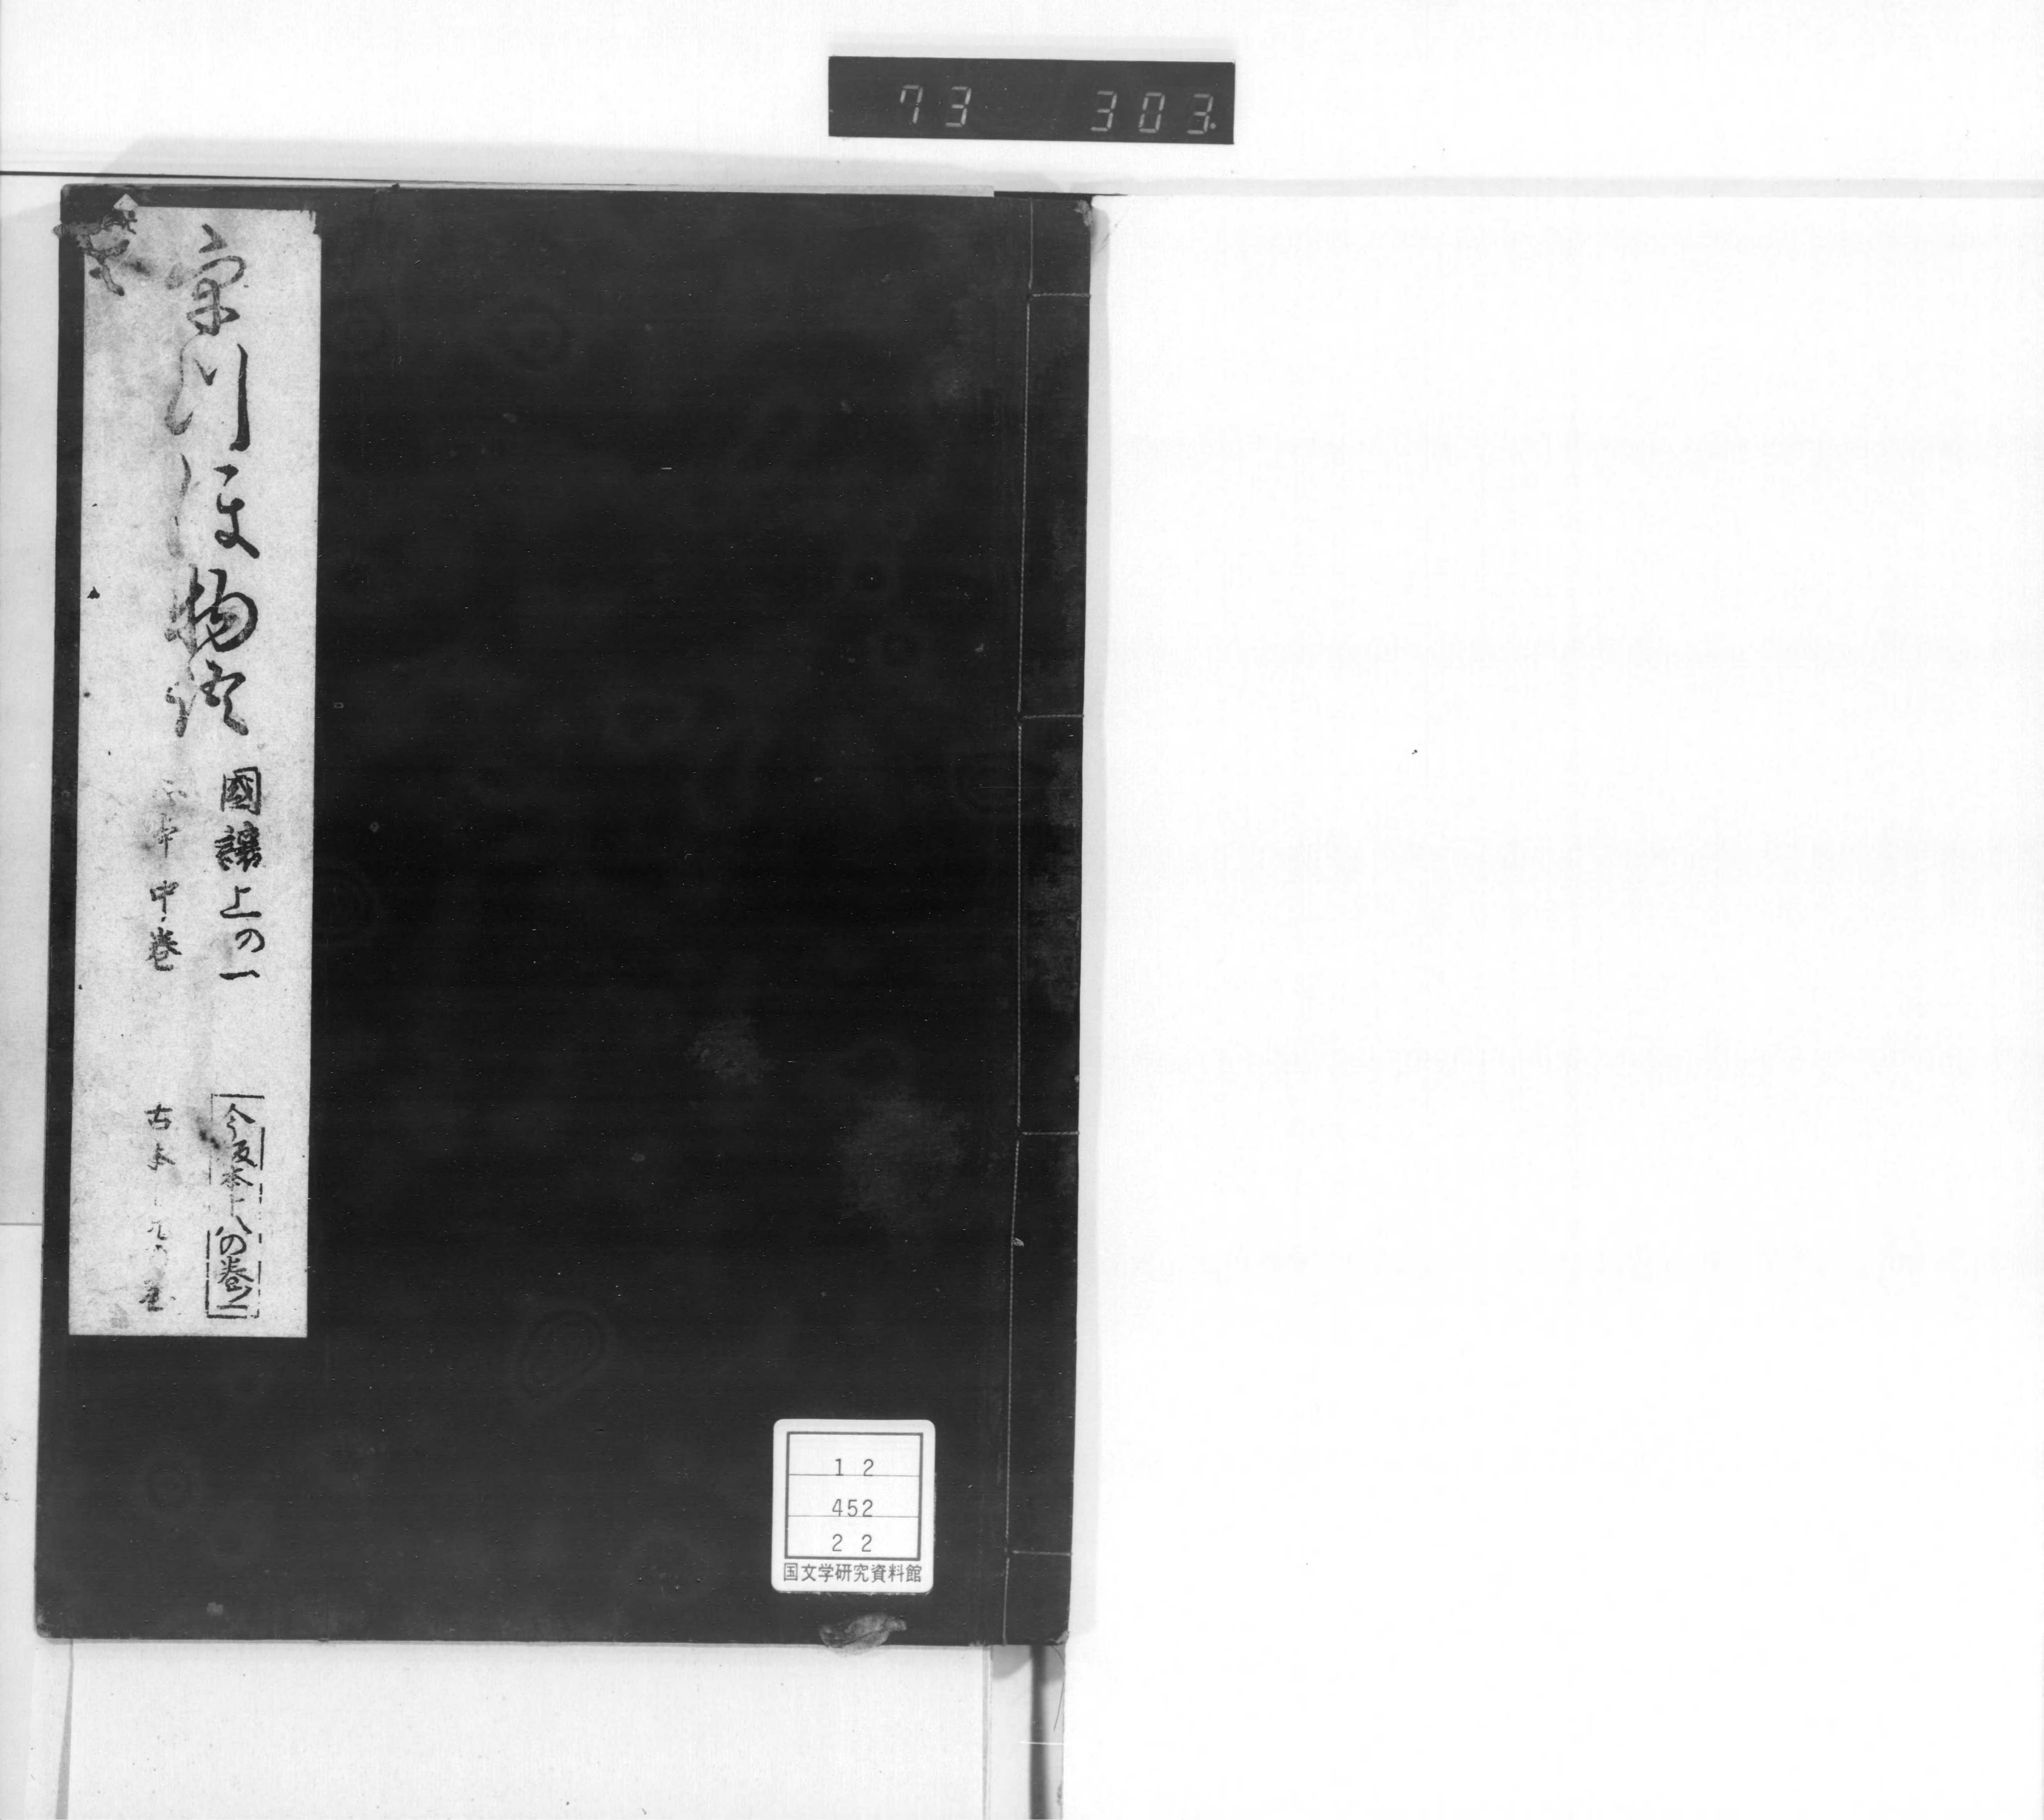 73 303
宇津保物語 國讓上の一
中巻
今板本十八の巻ノ一
古本
12
452
22
国文学研究資料館